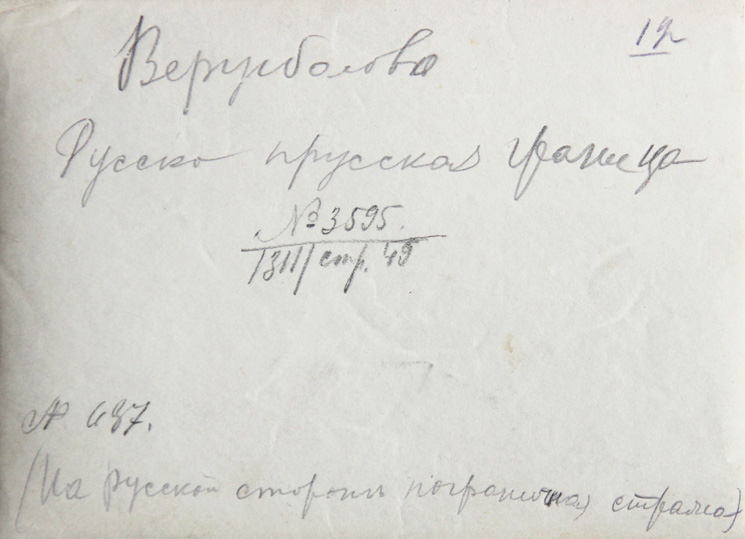 12
Вержболово
Русско прусская граница
№ 3595.
1311/стр. 49
№ 437.
(На русской стороне пограничная стража)